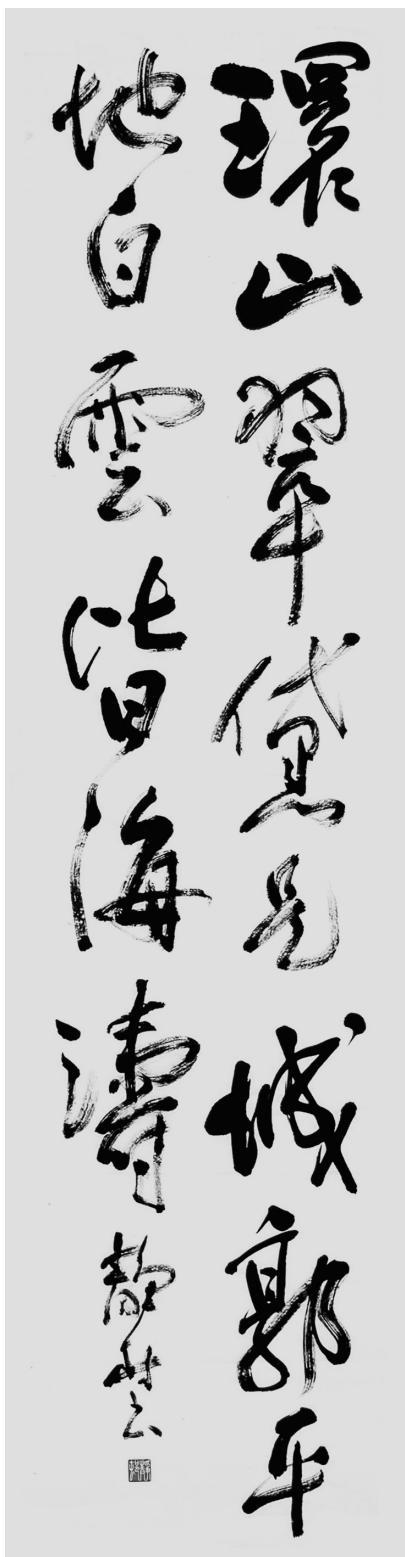 環山翠黛是城郭平
地白雲皆海濤
静